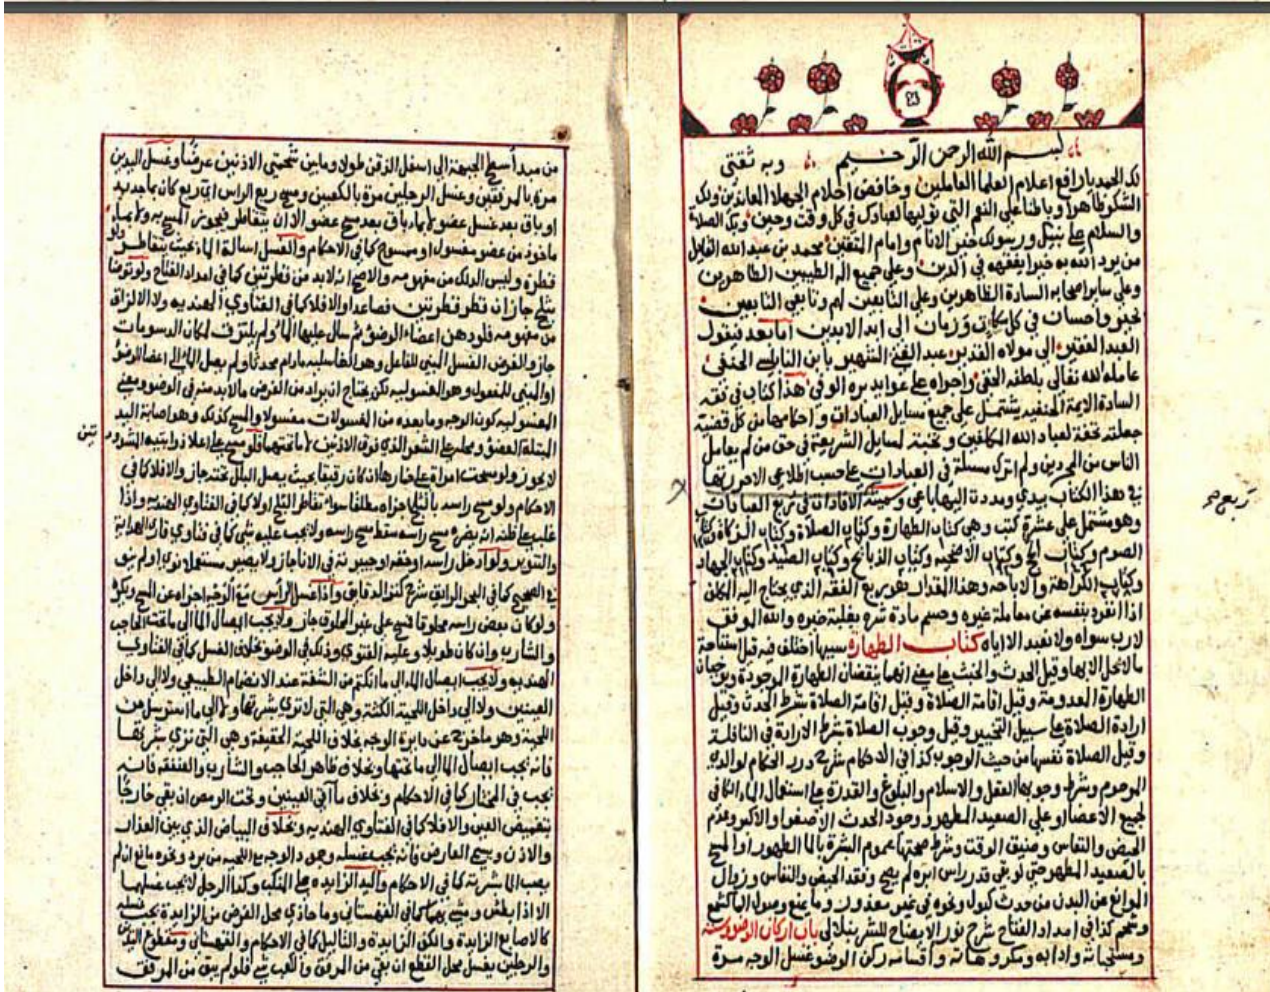 بسم الله الرحمن الرحيم وبه ثقتي
لك الحمد يا رافع اعلام العلما العاملين وخافض احلام الجهلا العاندين ولك
الشكر ظاهرا وباطنا على النعم التي توليها لعبادك في كل وقت وحين ومنك الصلاة
والسلام على نبيك ورسولك خير الانام وامام المتقين محمد بن عبد الله القايل
من يرد الله به خيرا يفقهه في الدين وعلى جميع اله الطيبين الطاهرين
وعلى ساير اصحابه السادة الظاهرين وعلى التابعين لهم وتابعي التابعين
بخير واحسان في كل مكان وزمان الى ابد الابدين اما بعد فيقول
العبد الفقير الى مولاه القدير عبد الغني الشهير بابن النابلسي الحنفي
عامله الله تعالى بلطفه الخفي واجراه على عوايد بره الوفي هذا كتاب في فقه
السادة الايمة الحنفية يشتمل على جميع مسايل العبادات و احكامها من كل قضية
جعلته تحفة لعباد الله المكلفين و لمسايل الشريعة في حق من لم يعامل
الناس من المجردين ولم اترك مسئلة في العبادات على حسب اطلاعي الا حررتها
في هذا الكتاب بيدي ومددت اليها باعي وسميته الافادات في ربع العبادات
وهو مشتمل على عشرة كتب وهي كتاب الطهارة وكتاب الصلاة وكتاب الزكاة وكتاب
الصوم وكتاب الحج وكتاب الاضحيه وكتاب الذبائح وكتاب الصيد وكتاب الجهاد
وكتاب الكراهة والاباحه وهذا المقدار هو ربع الفقه الذي يحتاج اليه المكلف
اذا انفرد بنفسه عن معاملة غيره وحسم مادة شره بغلبة خيره والله الموفق
لا رب سواه ولا نعبد الا اياه كتاب الطهارة سببها اختلف فيه قيل استباحة
ما لا يحل الا بها وقيل الحدث والخبث على معنى انهما ينقضان الطهارة الموجودة ويوجبان
الطهارة المعدومة وقيل اقامة الصلاة وقيل اقامة الصلاة بشرط الحدث وقيل
ارادة الصلاة على سبيل التخيير وقيل وجوب الصلاة بشرط الارادة في النافلة
وقيل الصلاة نفسها من حيث الوجوب كذا في الاحكام شرح درر الحكام لوالدي
المرحوم وشرط وجوبها العقل والاسلام والبلوغ والقدرة على استعمال الماء الكافي
لجميع الاعضا وعلى الصعيد المطهر ووجود الحدث الاصغر او الاكبر وعدم
الحيض والنفاس وضيق الوقت وشرط صحتها عموم البشرة بالماء الطهور او المسح
بالصعيد المطهر حتى لو بقي قدر راس ابرة لم يصح وفقد الحيض والنفاس وزوال
الموانع عن البدن من حدث كبول ونحوه في غير معذور وما يمنع وصول الماء كشمع
وشحم كذا في امداد الفتاح شرح نور الايضاح للشرنبلالي باب اركان الوضوء وسننه
ومستحباته وادابه ومكروهاته واقسامه ركن الوضوء غسل الوجه مرة
ربع
من مبدأ سطح الجبهة الى اسفل الذقن طولا وما بين شحمتي الاذنين عرضا وغسل اليدين
مرة بالمرفقين وغسل الرجلين مرة بالكعبين ومسح ربع الراس اي ربع كان بماء جديد
او باق بعد غسل عضو لا بماء باق بعد مسح عضو الا ان يتقاطر فيجوز المسح به ولا بماء
ماخوذ من عضو مغسول او ممسوح كما في الاحكام والغسل اسالة الماء بحيث يتقاطر ولو
قطرة وليس الدلك من مفهومه والاصح انه لابد من قطرتين كما في امداد الفتاح ولو توضا
بثلج جاز ان قطر قطرتين فصاعدا والا فلا كما في الفتاوي الهنديه ولا الالزاق
من مفهومه فلو دهن اعضاء الوضوء ثم سال عليها الماء ولم يلتزق لمكان الدسومات
جاز والفرض الغسل المبني للفاعل وهو الغاسلية ما دام محدثا ولم يصل الماء الى اعضا الوضوء
او المبني للمفعول وهو المغسولية لكن يحتاج ان يراد من الفرض ما لابد منه في الوضوء ومعنى
المغسولية كون الوجه وما بعده من المغسولات مغسولا والمسح كذلك وهو اصابة اليد
المبتلة العضو ومحله على الشعر الذي فوق الاذنين لا ما تحتها فلو مسح على اعلا ذوايبه المشدودة
لا يجوز ولو مسحت امراة على خمارها ان كان رقيقا بحيث يصل البلل تحته جاز والا فلا كما في
الاحكام ولو مسح راسه بالثلج اجزاه مطلقا سواء تقاطر الثلج او لا كما في الفتاوي الهنديه واذا
غلب على ظنه انه يضره مسح راسه سقط مسح راسه ولا يجب عليه شي كما في فتاوي قاري الهداية
والتنوير ولو ادخل راسه او خفه او جبيرته في الاناء جاز ولا يصير مستعملا نوي او لم ينو
في الصحيح كما في البحر الرايق شرح كنز الدقايق واذا غسل الراس مع الوجه اجزاه عن المسح ويكره
ولو كان بعض راسه محلوقا فمسح على غير المحلوق جاز ولا يجب ايصال الماء الى ما تحت الحاجب
والشارب وان كان طويلا وعليه الفتوي وذلك في الوضوء بخلاف الغسل كما في الفتاوي
الهنديه ولا يجب ايصال الماء الى ما انكتم من الشفة عند الانضمام الطبيعي ولا الى داخل
العينين ولا الى داخل اللحية الكثة وهي التي لا تري بشرتها ولا الى ما استرسل من
اللحية وهو ما خرج عن دايرة الوجه بخلاف اللحية الخفيفة وهي التي تري بشرتها
فانه يجب ايصال الماء الى ما تحتها وبخلاف ظاهر الحاجب والشارب والعنفقه فانه
يجب في المختار كما في الاحكام وبخلاف مآقي العينين وتحت الرمص ان بقي خارجا
بتغميض العين والا فلا كما في الفتاوي الهنديه وبخلاف البياض الذي بين العذار
والاذن ويسمى العارض فانه يجب غسله وحدود الوجه مع اللحية من برد ونحوه مانع ان لم
يصب الماء بشرته كما في الاحكام واليد الزايدة على المنكب وكذا الرجل لا يجب غسلها
الا اذا بطش ومشى بهما كما في القهستاني وما حاذي محل الفرض من الزايدة يجب غسله
كالاصابع الزايدة والكف الزايدة والثاليل كما في الاحكام والقهستاني ومقطوع اليدين
والرجلين يغسل محل القطع ان بقي من المرفق والكعب شي فلو لم يبق من المرفق